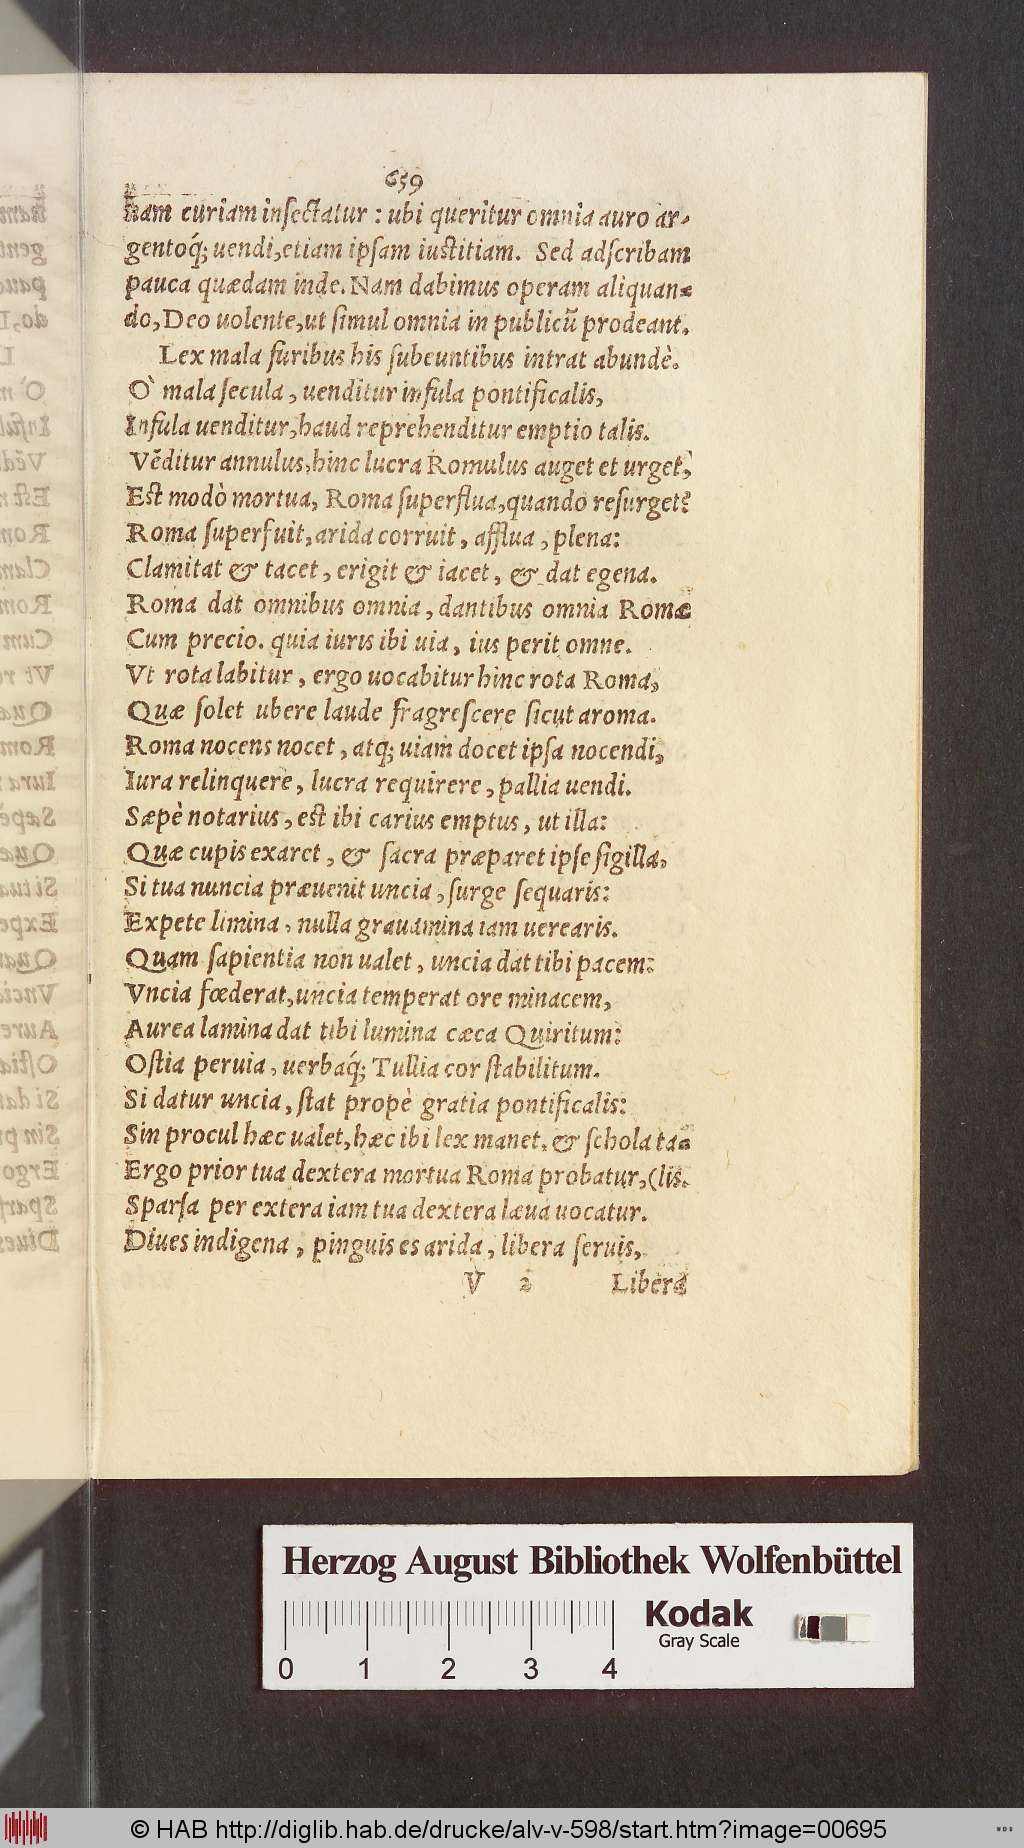 659
nam curiam insectatur : ubi queritur omnia auro ar-
gentoq́; uendi, etiam ipsam iustitiam. Sed adscribam
pauca quædam inde. Nam dabimus operam aliquan-
do, Deo uolente, ut simul omnia in publicũ prodeant.
Lex mala furibus his subeuntibus intrat abundè.
O` mala secula, uenditur infula pontificalis,
Infula uenditur, haud reprehenditur emptio talis.
Vẽditur annulus, hinc lucra Romulus auget et urget,
Est modò mortua, Roma superflua, quando resurget?
Roma superfuit, arida corruit, afflua, plena:
Clamitat & tacet, erigit & iacet, & dat egena.
Roma dat omnibus omnia, dantibus omnia Romæ
Cum precio. quia iuris ibi uia, ius perit omne.
Vt rota labitur, ergo uocabitur hinc rota Roma,
Quæ solet ubere laude fragrescere sicut aroma.
Roma nocens nocet, atq; uiam docet ipsa nocendi,
Iura relinquere, lucra requirere, pallia uendi.
Sæpè notarius, est ibi carius emptus, ut illa:
Quæ cupis exaret, & sacra præparet ipse sigilla,
Si tua nuncia præuenit uncia, surge sequaris:
Expete limina, nulla grauamina iam uerearis.
Quam sapientia non ualet, uncia dat tibi pacem:
Vncia fœderat, uncia temperat ore minacem,
Aurea lamina dat tibi lumina cæca Quiritum:
Ostia peruia, uerbaq́; Tullia cor stabilitum.
Si datur uncia, stat propè gratia pontificalis:
Sin procul hæc ualet, hæc ibi lex manet, & schola ta-
Ergo prior tua dextera mortua Roma probatur, (lis.
Sparsa per extera iam tua dextera læua uocatur.
Diues indigena, pinguis es arida, libera seruis,
V 2 Libera
Herzog August Bibliothek Wolfenbüttel
Kodak
Gray Scale
0 1 2 3 4
© HAB http://diglib.hab.de/drucke/alv-v-598/start.htm?image=00695